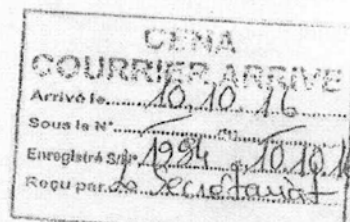 CENA
COURRIER ARRIVE
Arrivé le.....10.10.16
Sous le N°..... du.....
Enregistré S/N° 1294 10.10.16
Reçu par Le Secrétariat